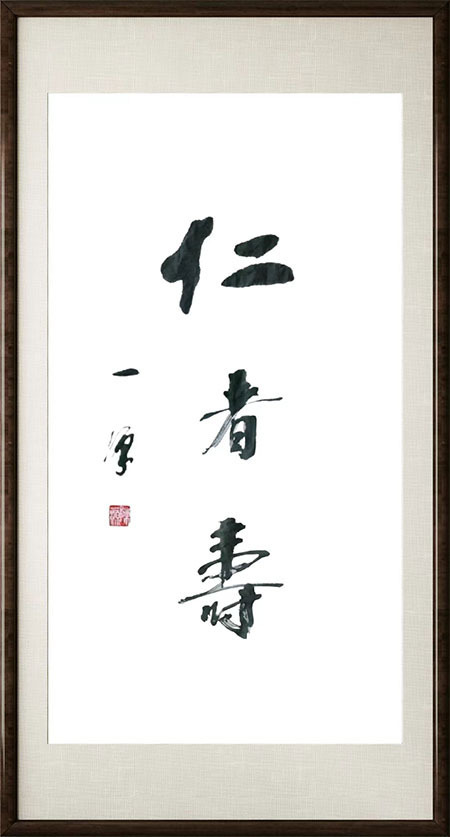 仁者壽
一